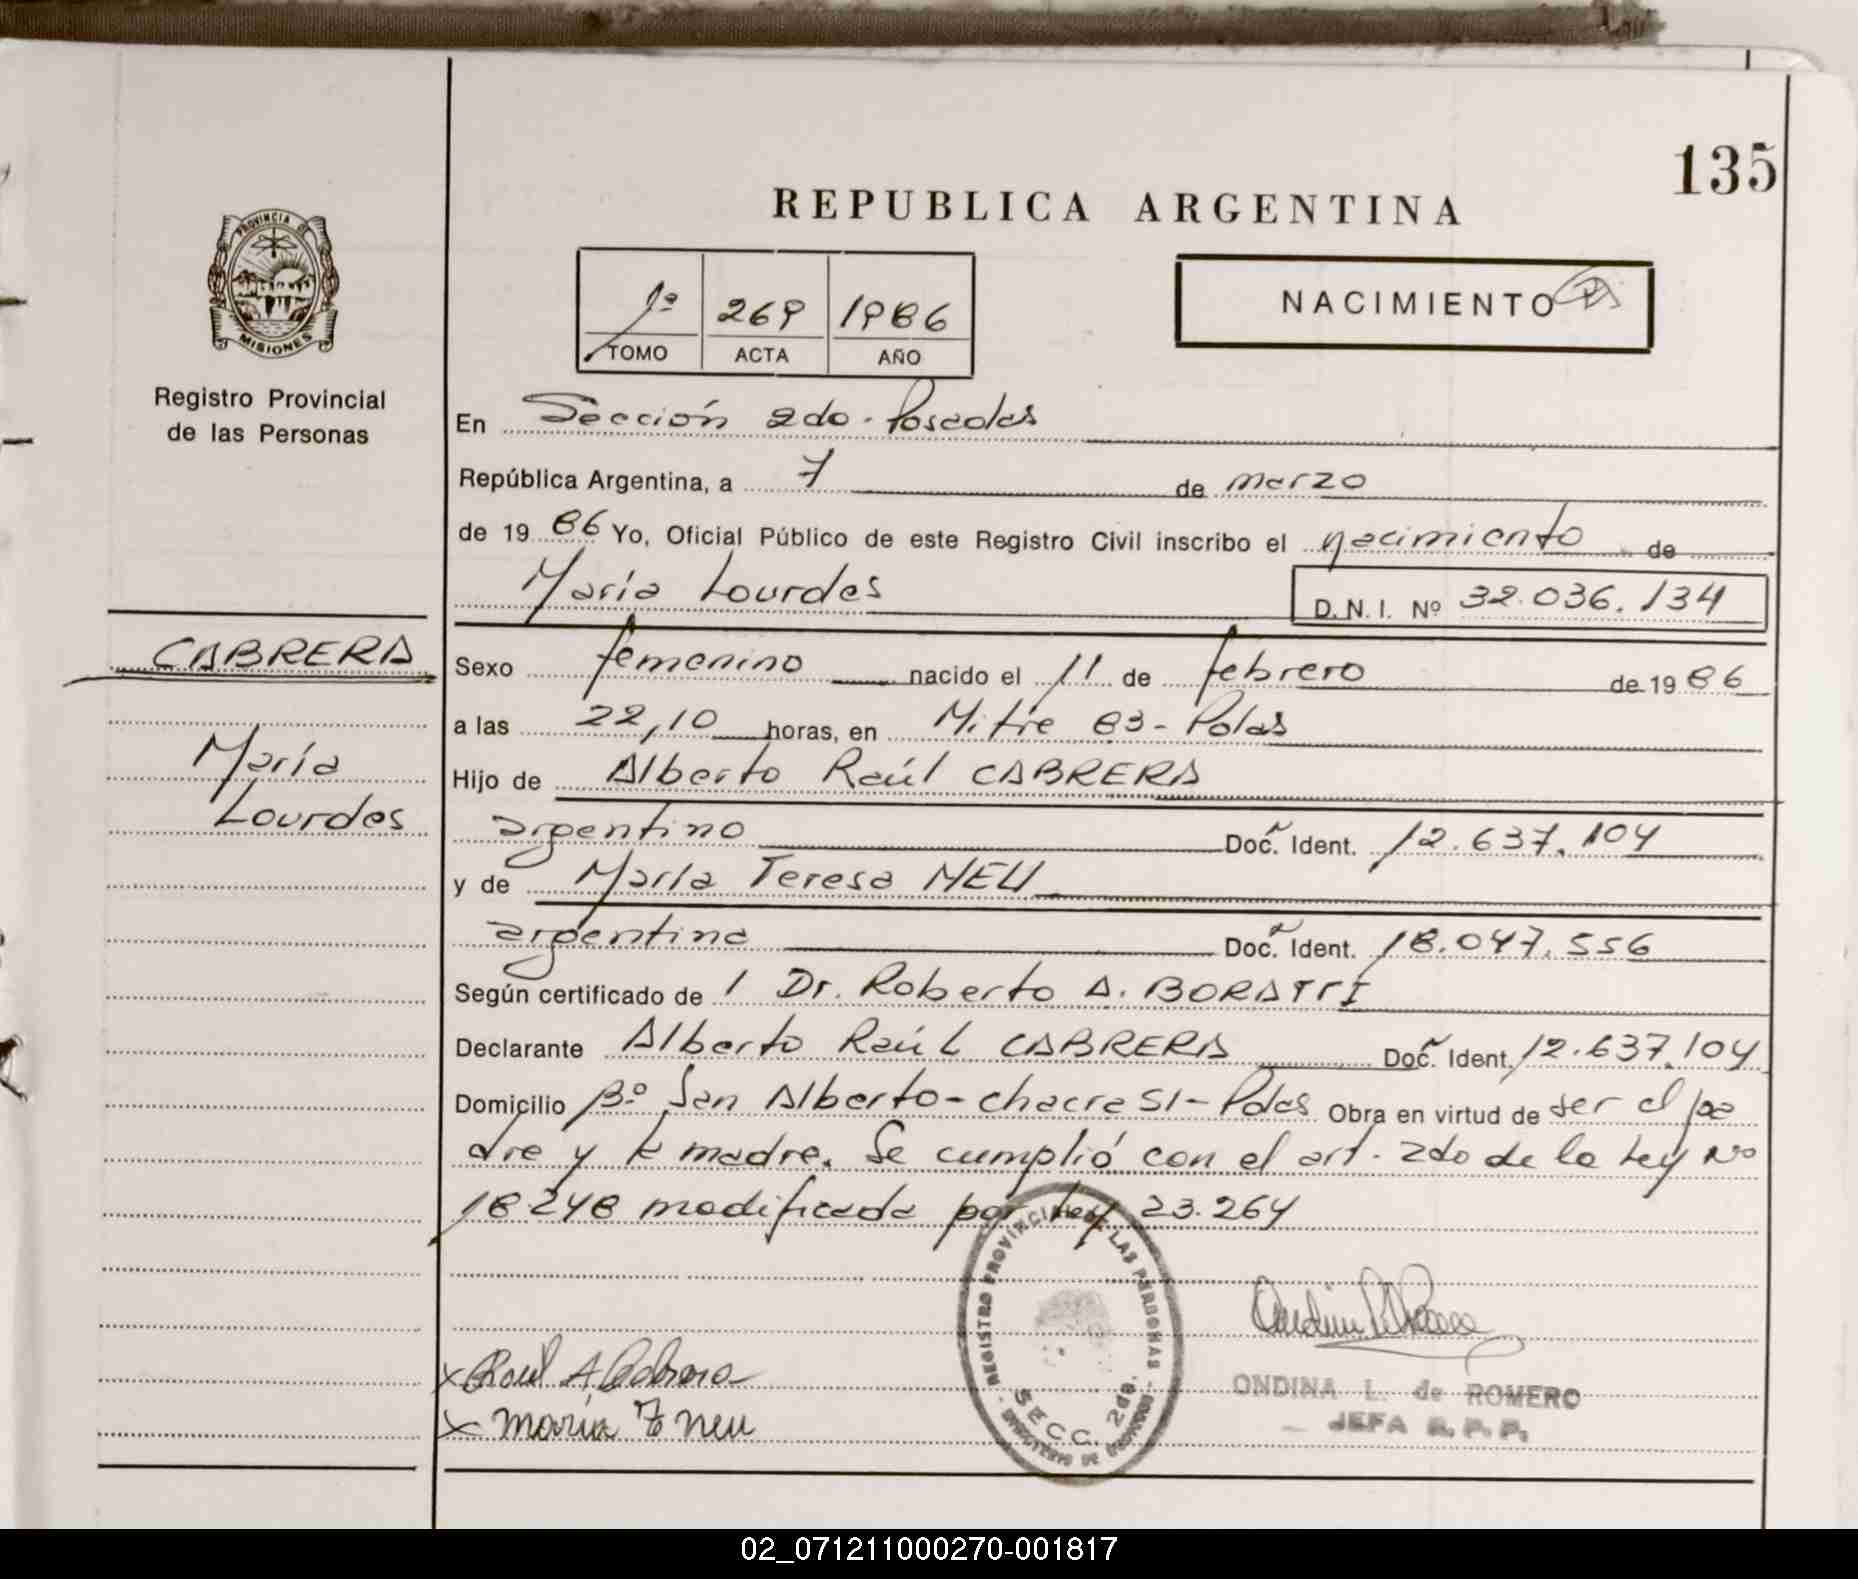 135
REPUBLICA ARGENTINA
PROVINCIA DE
MISIONES
Registro Provincial
de las Personas
1º 269 1986
TOMO ACTA AÑO
NACIMIENTO
En Sección 2da - Posadas
República Argentina, a 7 de marzo
de 1986 Yo, Oficial Público de este Registro Civil inscribo el nacimiento de
María Lourdes D.N.I. Nº 32.036.134
CABRERA
María
Lourdes
Sexo femenino nacido el 11 de febrero de 1986
a las 22,10 horas, en Mitre 83 - Pdas
Hijo de Alberto Raúl CABRERA
argentino Doc. Ident. 12.637.104
y de María Teresa NEU
argentina Doc. Ident. 18.047.556
Según certificado de Dr. Roberto A. BORATTI
Declarante Alberto Raúl CABRERA Doc. Ident. 12.637.104
Domicilio Bº San Alberto - chacra 51 - Pdas Obra en virtud de ser el pa
dre y la madre. Se cumplió con el art. 2do de la Ley Nº
18.248 modificada por Ley 23.264
REGISTRO PROVINCIAL DE LAS PERSONAS
SECC. 2da.
Raul A Cabrera
María T Neu
ONDINA L. de ROMERO
JEFA R. P. P.
02_071211000270-001817